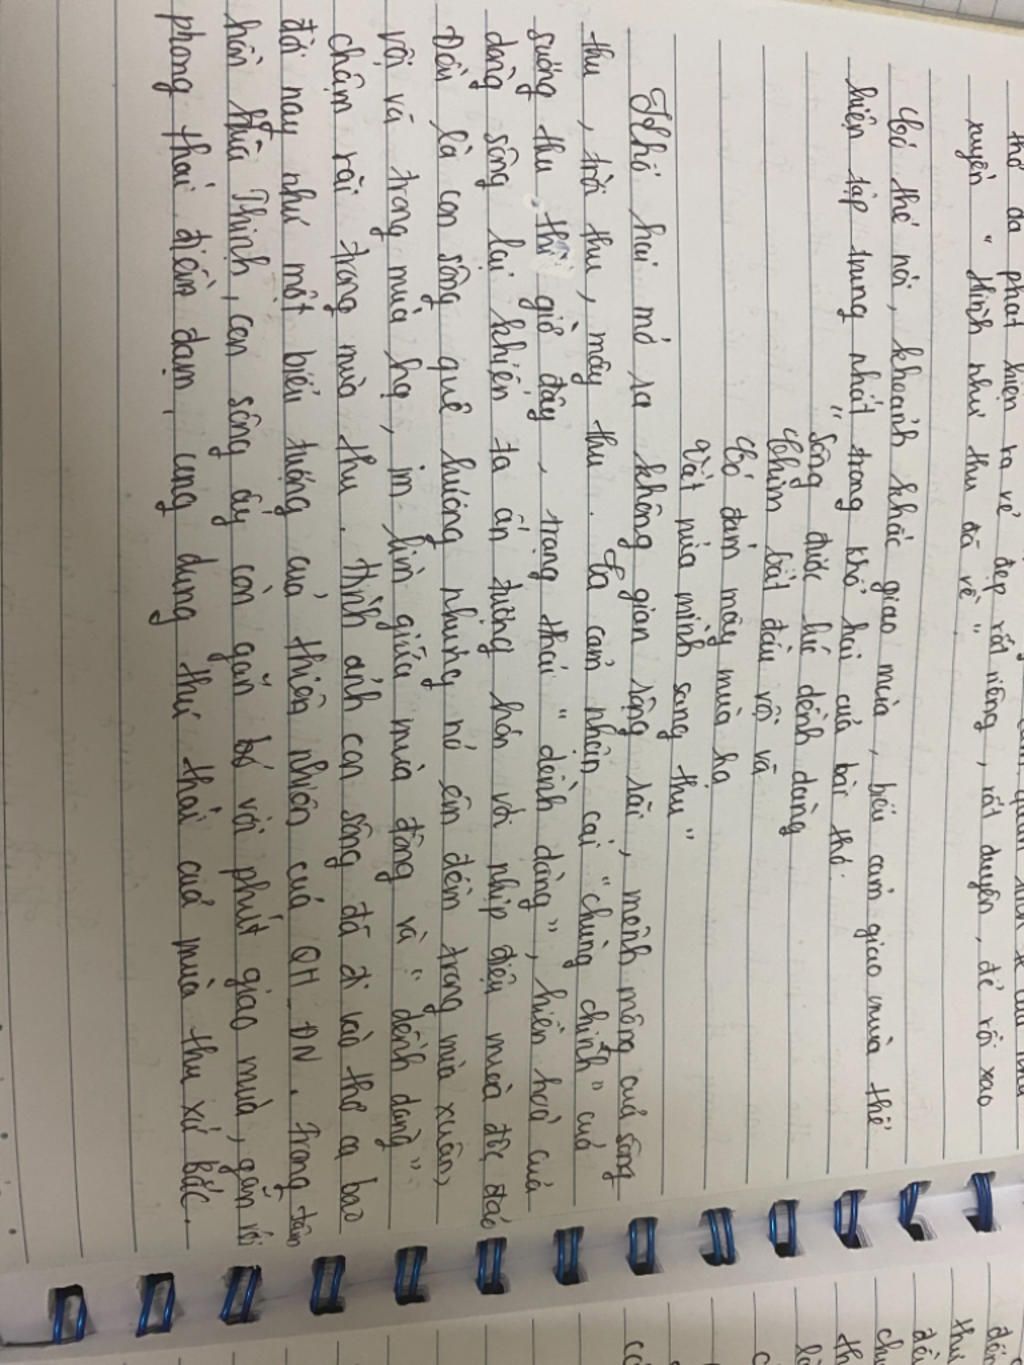 thơ đã phát hiện ra vẻ đẹp rất nồng, rất duyên, để rồi xao
xuyến "Hình như thu đã về".
Có thể nói, khoảnh khắc giao mùa, biểu cảm giao mùa thể
hiện tập trung nhất trong khổ hai của bài thơ.
"Sông được lúc dềnh dàng
Chim bắt đầu vội vã
Có đám mây mùa hạ
Vắt nửa mình sang thu"
Khổ hai mở ra không gian rộng rãi, mênh mông của sông
thu, trời thu, mây thu. Ta cảm nhận cái "chùng chình" của
sương thu, thì giờ đây, trạng thái "dềnh dàng", hiền hoà của
dòng sông lại khiến ta ấn tượng hơn với nhịp điệu mùa độc đáo
Đều là con sông quê hương nhưng nó êm đềm trong mùa xuân,
vội vã trong mùa hạ, im lìm giữa mùa đông và "dềnh dàng"
chậm rãi trong mùa thu. Hình ảnh con sông đã đi vào thơ ca bao
đời nay như một biểu tượng của thiên nhiên của QH_ĐN. Trong tâm
hồn Hữu Thỉnh, con sông ấy còn gắn bó với phút giao mùa, gắn với
phong thái điềm đạm, ung dung thư thái của mùa thu xứ Bắc.